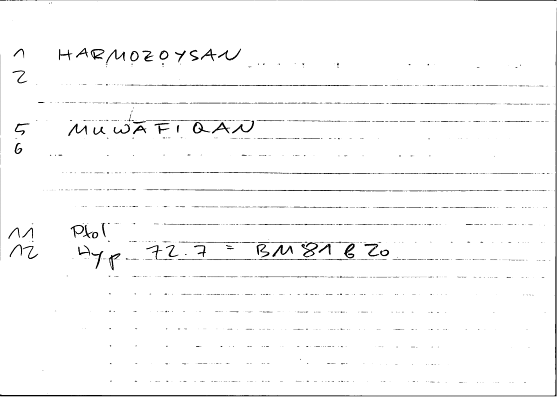 1 HARMOZOYSAN
2
5 MUWĀFIQAN
6
11 Ptol
12 Hyp. 72.7 = BM 81 b 20